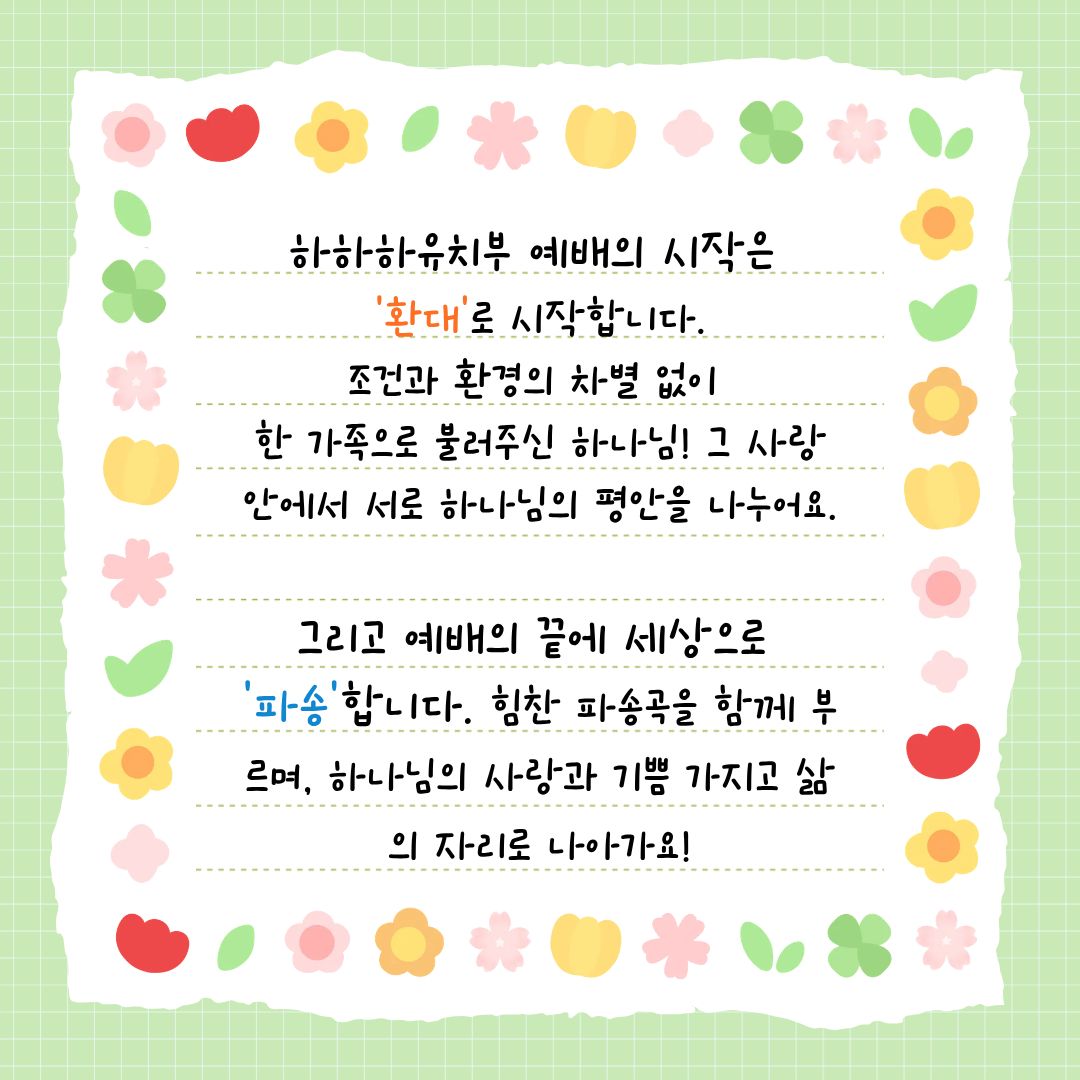 하하하유치부 예배의 시작은
'환대'로 시작합니다.
조건과 환경의 차별 없이
한 가족으로 불러주신 하나님! 그 사랑
안에서 서로 하나님의 평안을 나누어요.
그리고 예배의 끝에 세상으로
'파송'합니다. 힘찬 파송곡을 함께 부
르며, 하나님의 사랑과 기쁨 가지고 삶
의 자리로 나아가요!